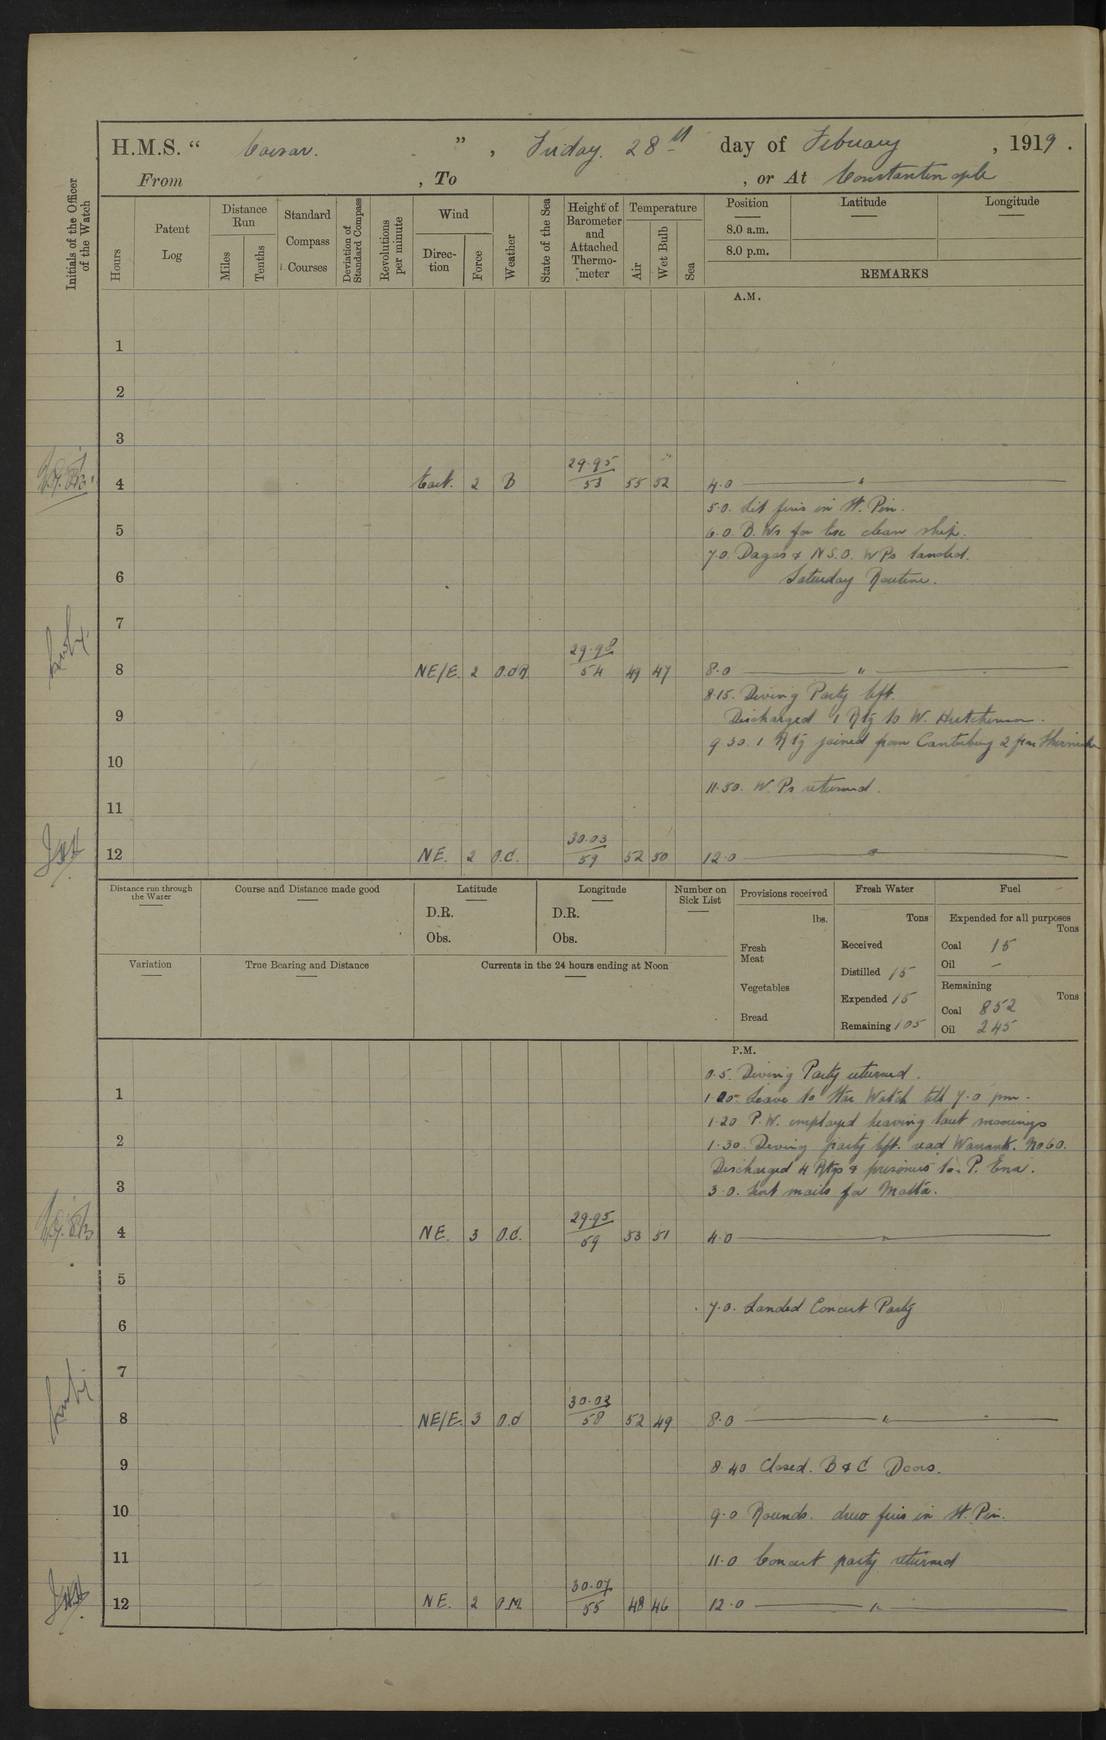 H.M.S. " Caesar. " , Friday. 28th day of February , 1919 .
From , To , or At Constantinople
Initials of the Officer of the Watch
Hours
Patent Log
Distance Run
Miles
Tenths
Standard Compass Courses
Deviation of Standard Compass
Revolutions per minute
Wind
Direction
Force
Weather
State of the Sea
Height of Barometer and Attached Thermometer
Temperature
Air
Wet Bulb
Sea
Position
8.0 a.m.
8.0 p.m.
Latitude
Longitude
REMARKS
A.M.
1
2
3
4 East. 2 B 29.95/53 55 52 4.0 "
5.0. Lit fires in St. Pin.
5
6.0. clean ship.
7.0. & N.S.O. WPs landed.
6 Saturday Routine.
7
8 NE/E. 2 29.98/54 49 47 8.0 "
8.15. Diving Party left.
9 Discharged 1 Rtg to W. Hutchinson.
9.30. 1 Rtg joined from Canterbury 2 from
10
11.50. W.Ps returned.
11
12 NE. 2 O.C. 30.03/59 52 50 12.0 "
Distance run through the Water
Course and Distance made good
Latitude
D.R.
Obs.
Longitude
D.R.
Obs.
Number on Sick List
Provisions received
lbs.
Fresh Meat
Vegetables
Bread
Fresh Water
Tons
Received
Distilled 15
Expended 15
Remaining 105
Fuel
Expended for all purposes
Tons
Coal 15
Oil –
Remaining
Tons
Coal 852
Oil 245
Variation
True Bearing and Distance
Currents in the 24 hours ending at Noon
P.M.
0.5. Diving Party returned.
1 Leave to Watch till 7.0 pm.
1.20 P.W. employed heaving taut moorings
2 1.30. Diving party left. read Warrant. No 60.
Discharged 4 Rtgs & prisoners to
3 3.0. Sent mails for Malta.
4 NE. 3 O.C. 29.95/59 53 51 4.0 "
5
7.0. Landed Concert Party
6
7
8 NE/E. 3 O.C 30.03/58 52 49 8.0 "
9 8.40 Closed. B & C Doors.
10 9.0 Rounds. drew fires in St. Pin.
11 11.0 Concert party returned
12 NE. 2 O.M. 30.07/55 48 46 12.0 "